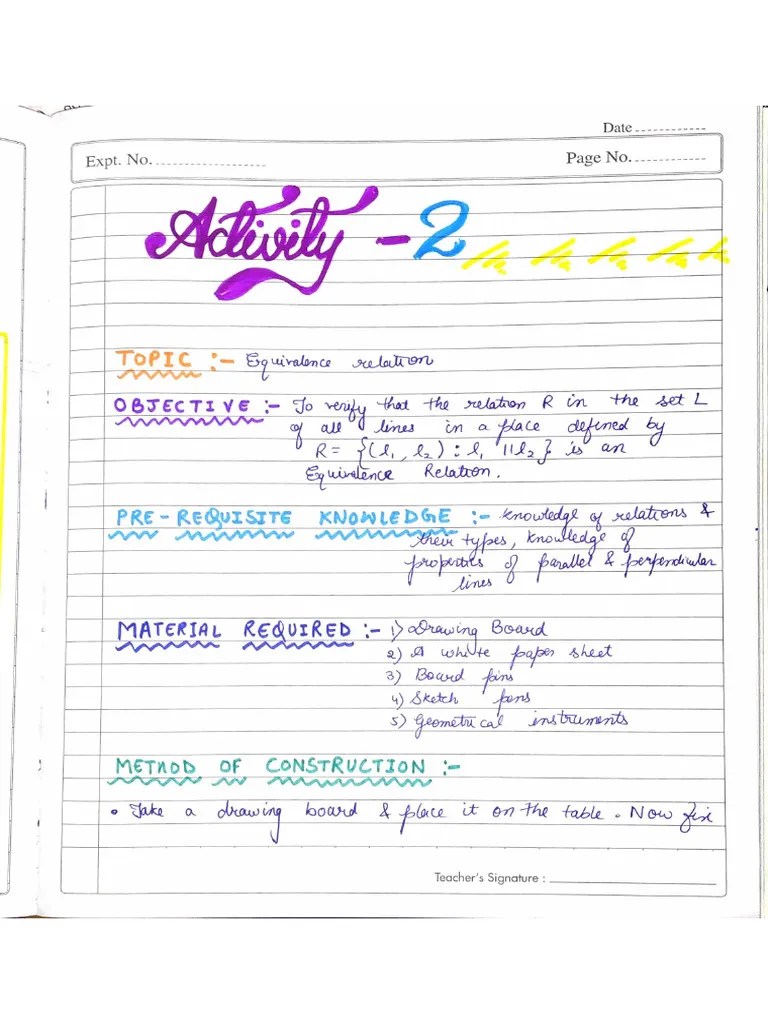 Date
Expt. No.
Page No.
Activity - 2
TOPIC :- Equivalence relation
OBJECTIVE :- To verify that the relation R in the set L
of all lines in a place defined by
R = {(l₁, l₂) : l₁ || l₂} is an
Equivalence Relation.
PRE-REQUISITE KNOWLEDGE :- Knowledge of relations &
their types, Knowledge of
properties of parallel & perpendicular
lines
MATERIAL REQUIRED :- 1) Drawing Board
2) A white paper sheet
3) Board pins
4) Sketch pens
5) Geometrical instruments
METHOD OF CONSTRUCTION :-
• Take a drawing board & place it on the table. Now fix
Teacher's Signature :